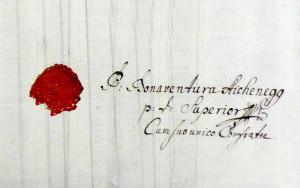 P: Bonaventura Aichenegg
p: t: Superior
Cum suo unico Confratre